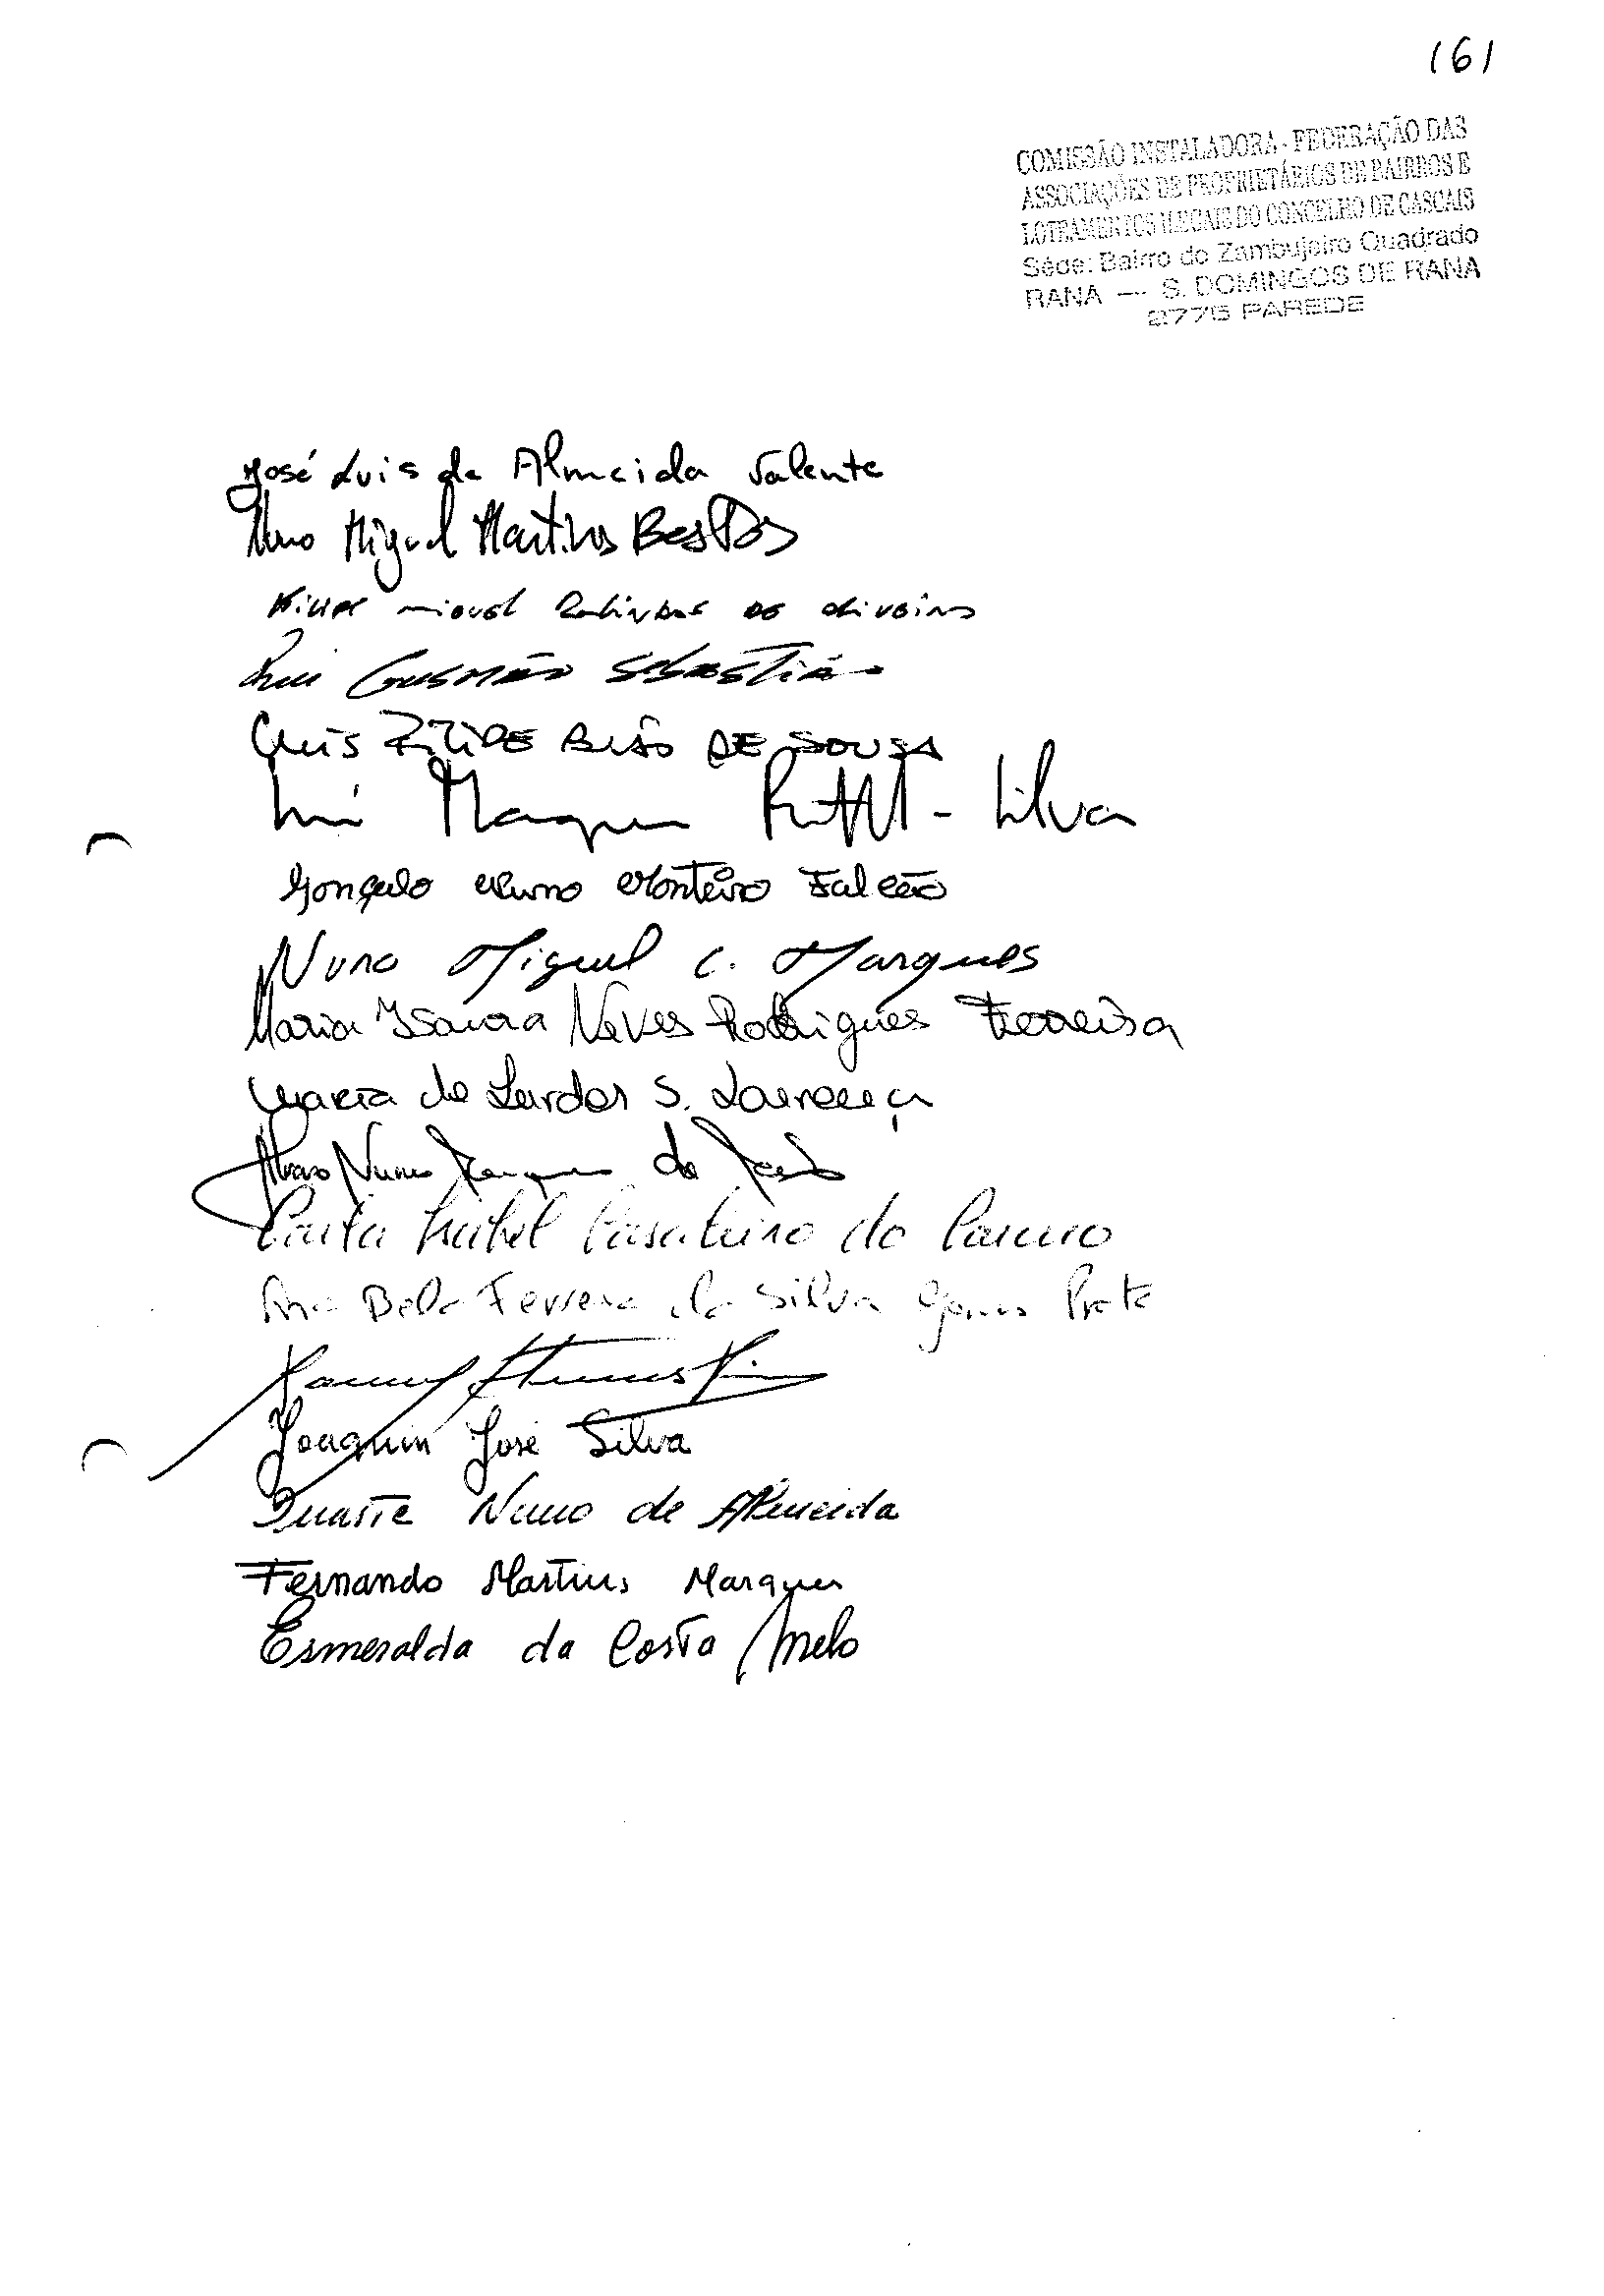 161
COMISSÃO INSTALADORA - FEDERAÇÃO DAS
ASSOCIAÇÕES DE PROPRIETÁRIOS DE BAIRROS E
LOTEAMENTOS ILEGAIS DO CONCELHO DE CASCAIS
Séde: Bairro do Zambujeiro Quadrado
RANA — S. DOMINGOS DE RANA
2775 PAREDE
José Luis de Almeida Valente
Nuno Miguel Martins Bastos
miguel de oliveira
Rui Gusmão Sebastião
Luis Filipe Bião DE SOUSA
Marques Silva
Gonçalo Nuno Monteiro Falcão
Nuno Miguel C. Marques
Maria Isaura Neves Rodrigues Ferreira
Maria de Lurdes S. Lourenço
Alvaro Nuno Marques da
Carla Isabel do Carmo
Ana Bela Ferreira da Silva Gomes Prata
Joaquim José Silva
Duarte Nuno de Almeida
Fernando Martins Marques
Esmeralda da Costa Melo